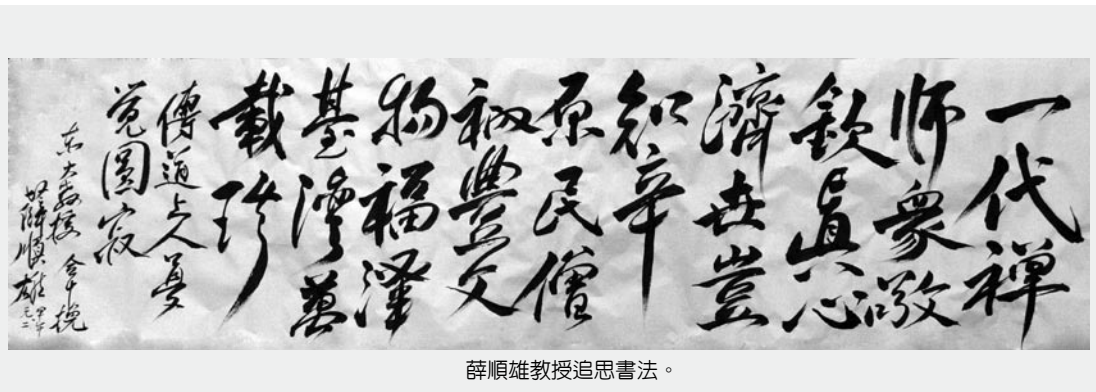 一代禪
師衆敬
欽真心
濟世豈
知辛
原民僧
衲豐文
物福澤
臺灣萬
載珍
傳道上人
覺圓寂
东大教授 挽
薛順雄 甲午
薛順雄教授追思書法。